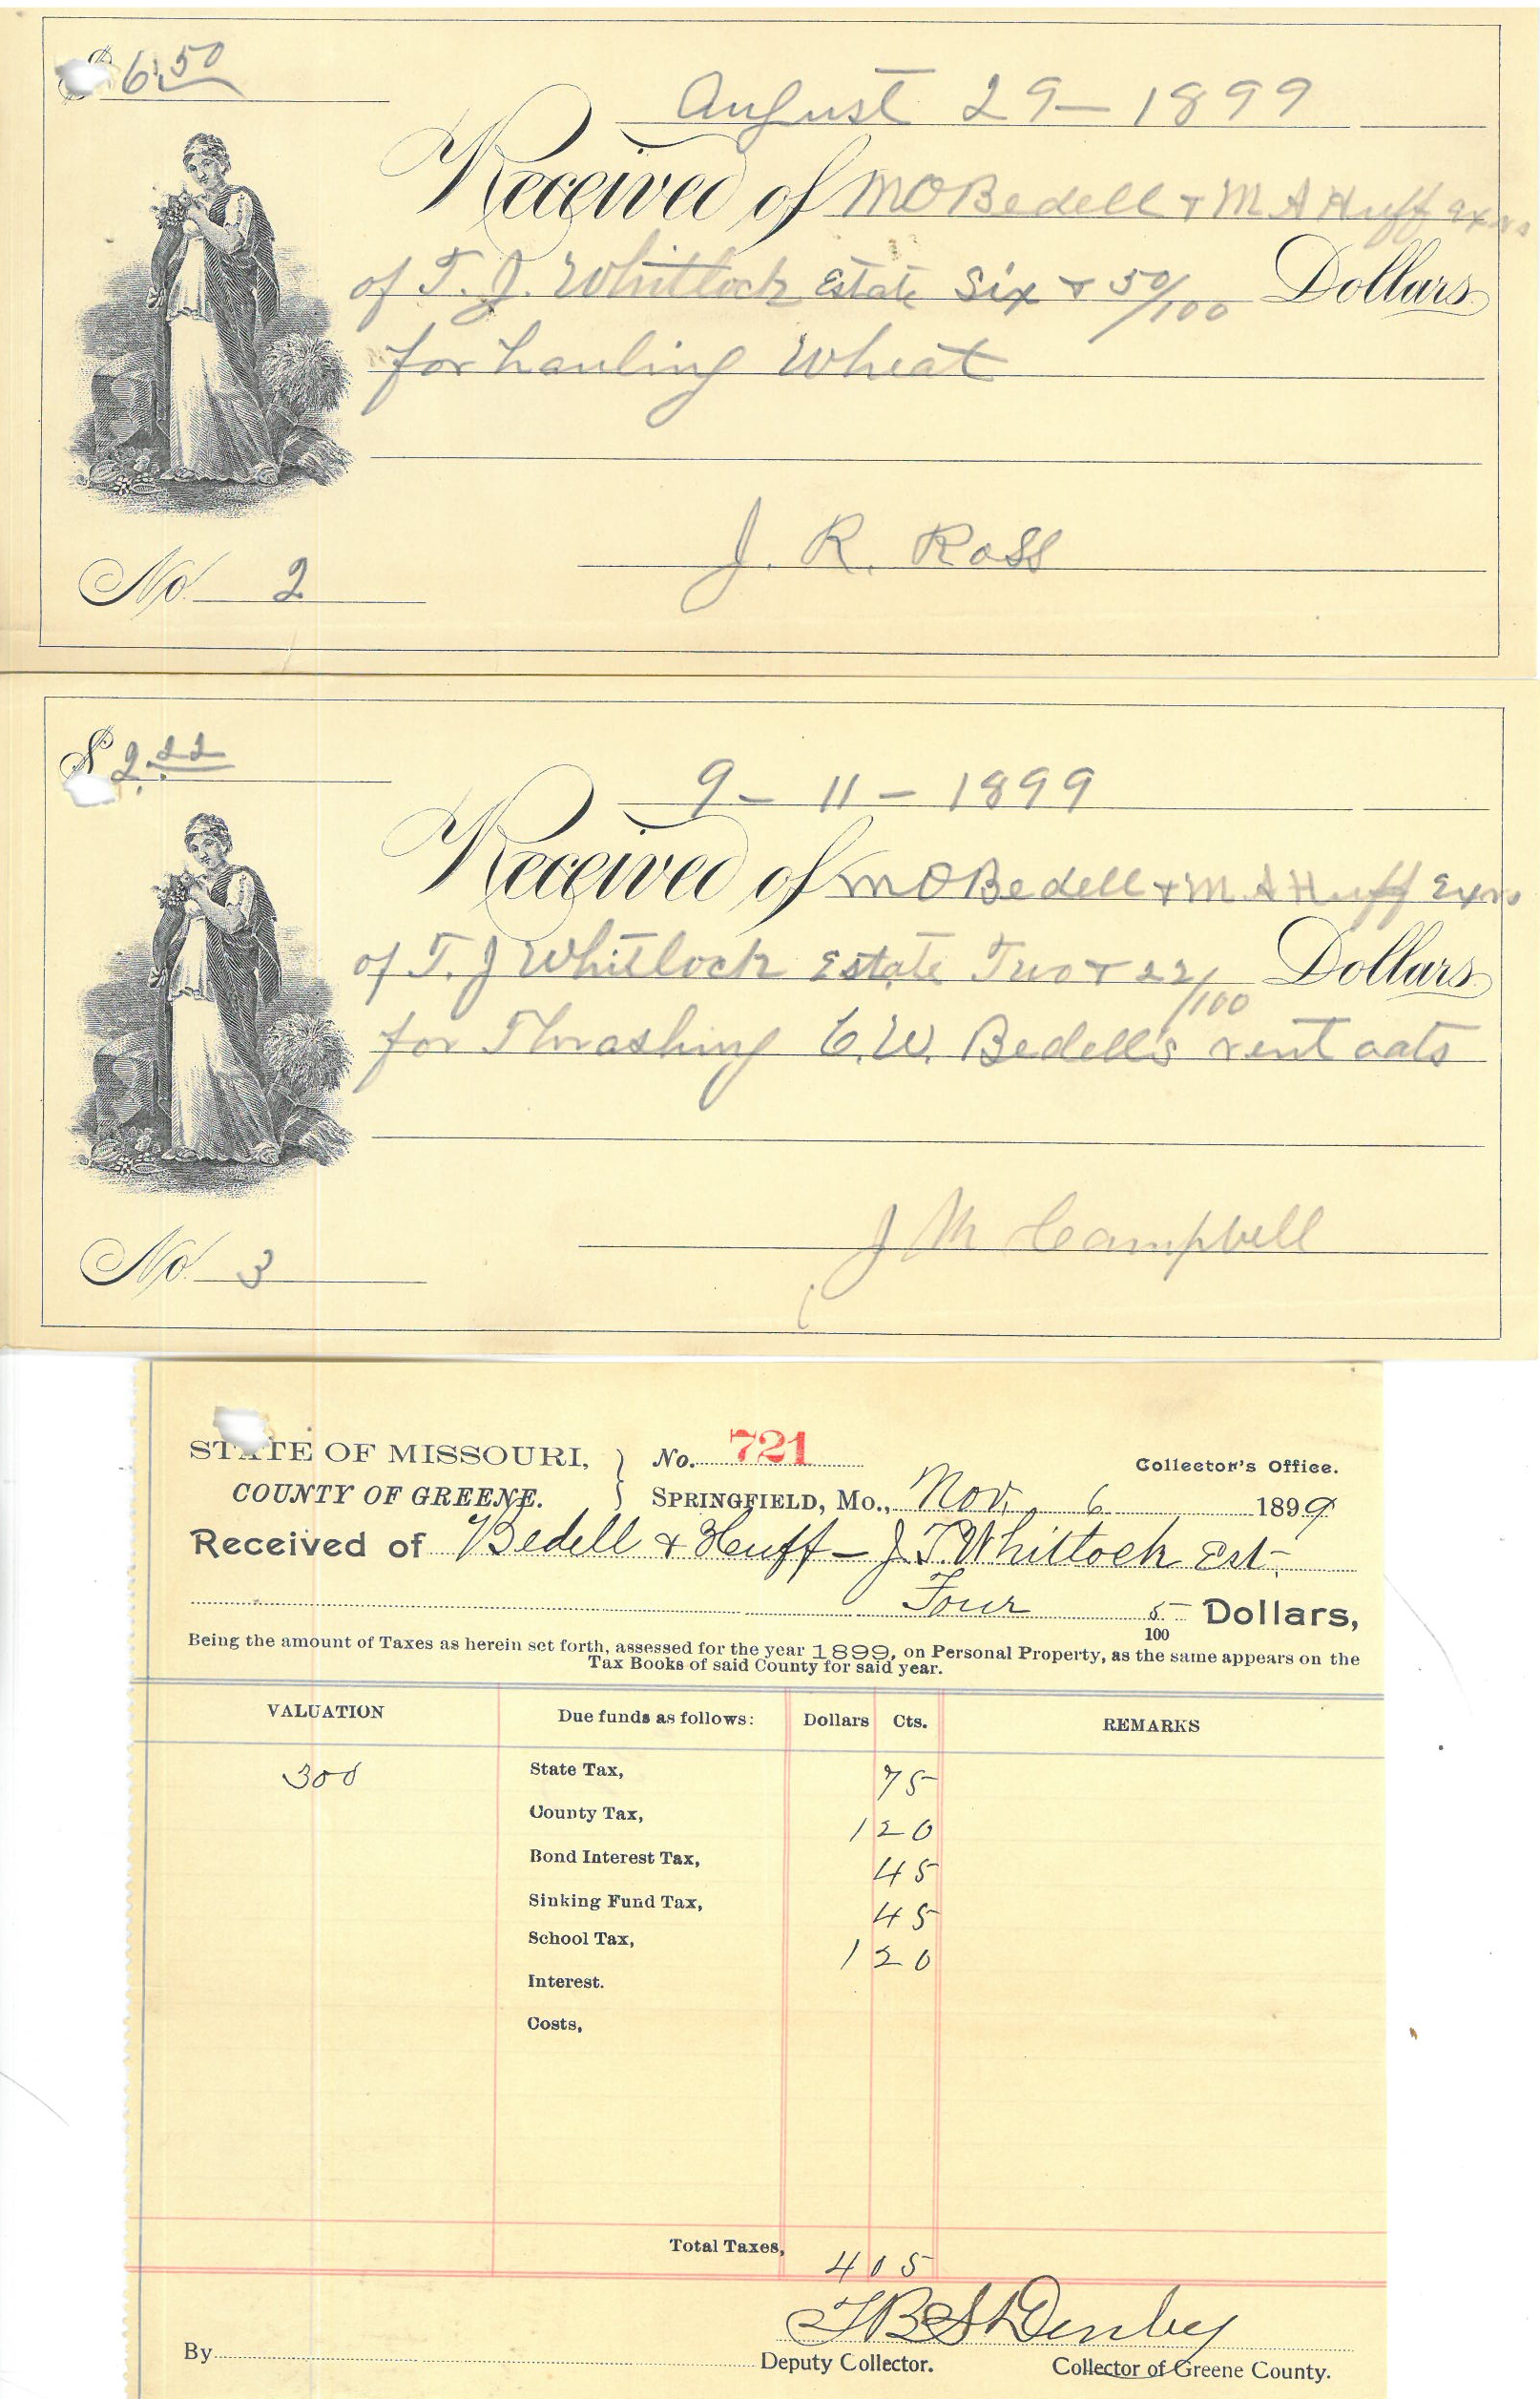 $ 6.50
August 29 - 1899
Received of M O Bedell & M A Huff Exrs
of T. J. Whitlock Estate Six & 50/100 Dollars
for hauling Wheat
J. R. Ross
No. 2
$ 2.22
9 - 11 - 1899
Received of M O Bedell & M A Huff Exrs
of T. J Whitlock Estate Two & 22/100 Dollars
for Thrashing C. W. Bedell's rent oats
J M Campbell
No. 3
STATE OF MISSOURI, No. 721 Collector's Office.
COUNTY OF GREENE. SPRINGFIELD, Mo., Nov. 6 1899
Received of Bedell & Huff - J. T. Whittock Est-
Four 5/100 Dollars,
Being the amount of Taxes as herein set forth, assessed for the year 1899, on Personal Property, as the same appears on the
Tax Books of said County for said year.
VALUATION Due funds as follows: Dollars Cts. REMARKS
300 State Tax, 75
County Tax, 1 20
Bond Interest Tax, 45
Sinking Fund Tax, 45
School Tax, 1 20
Interest.
Costs,
Total Taxes, 4 05
By Deputy Collector. Collector of Greene County.